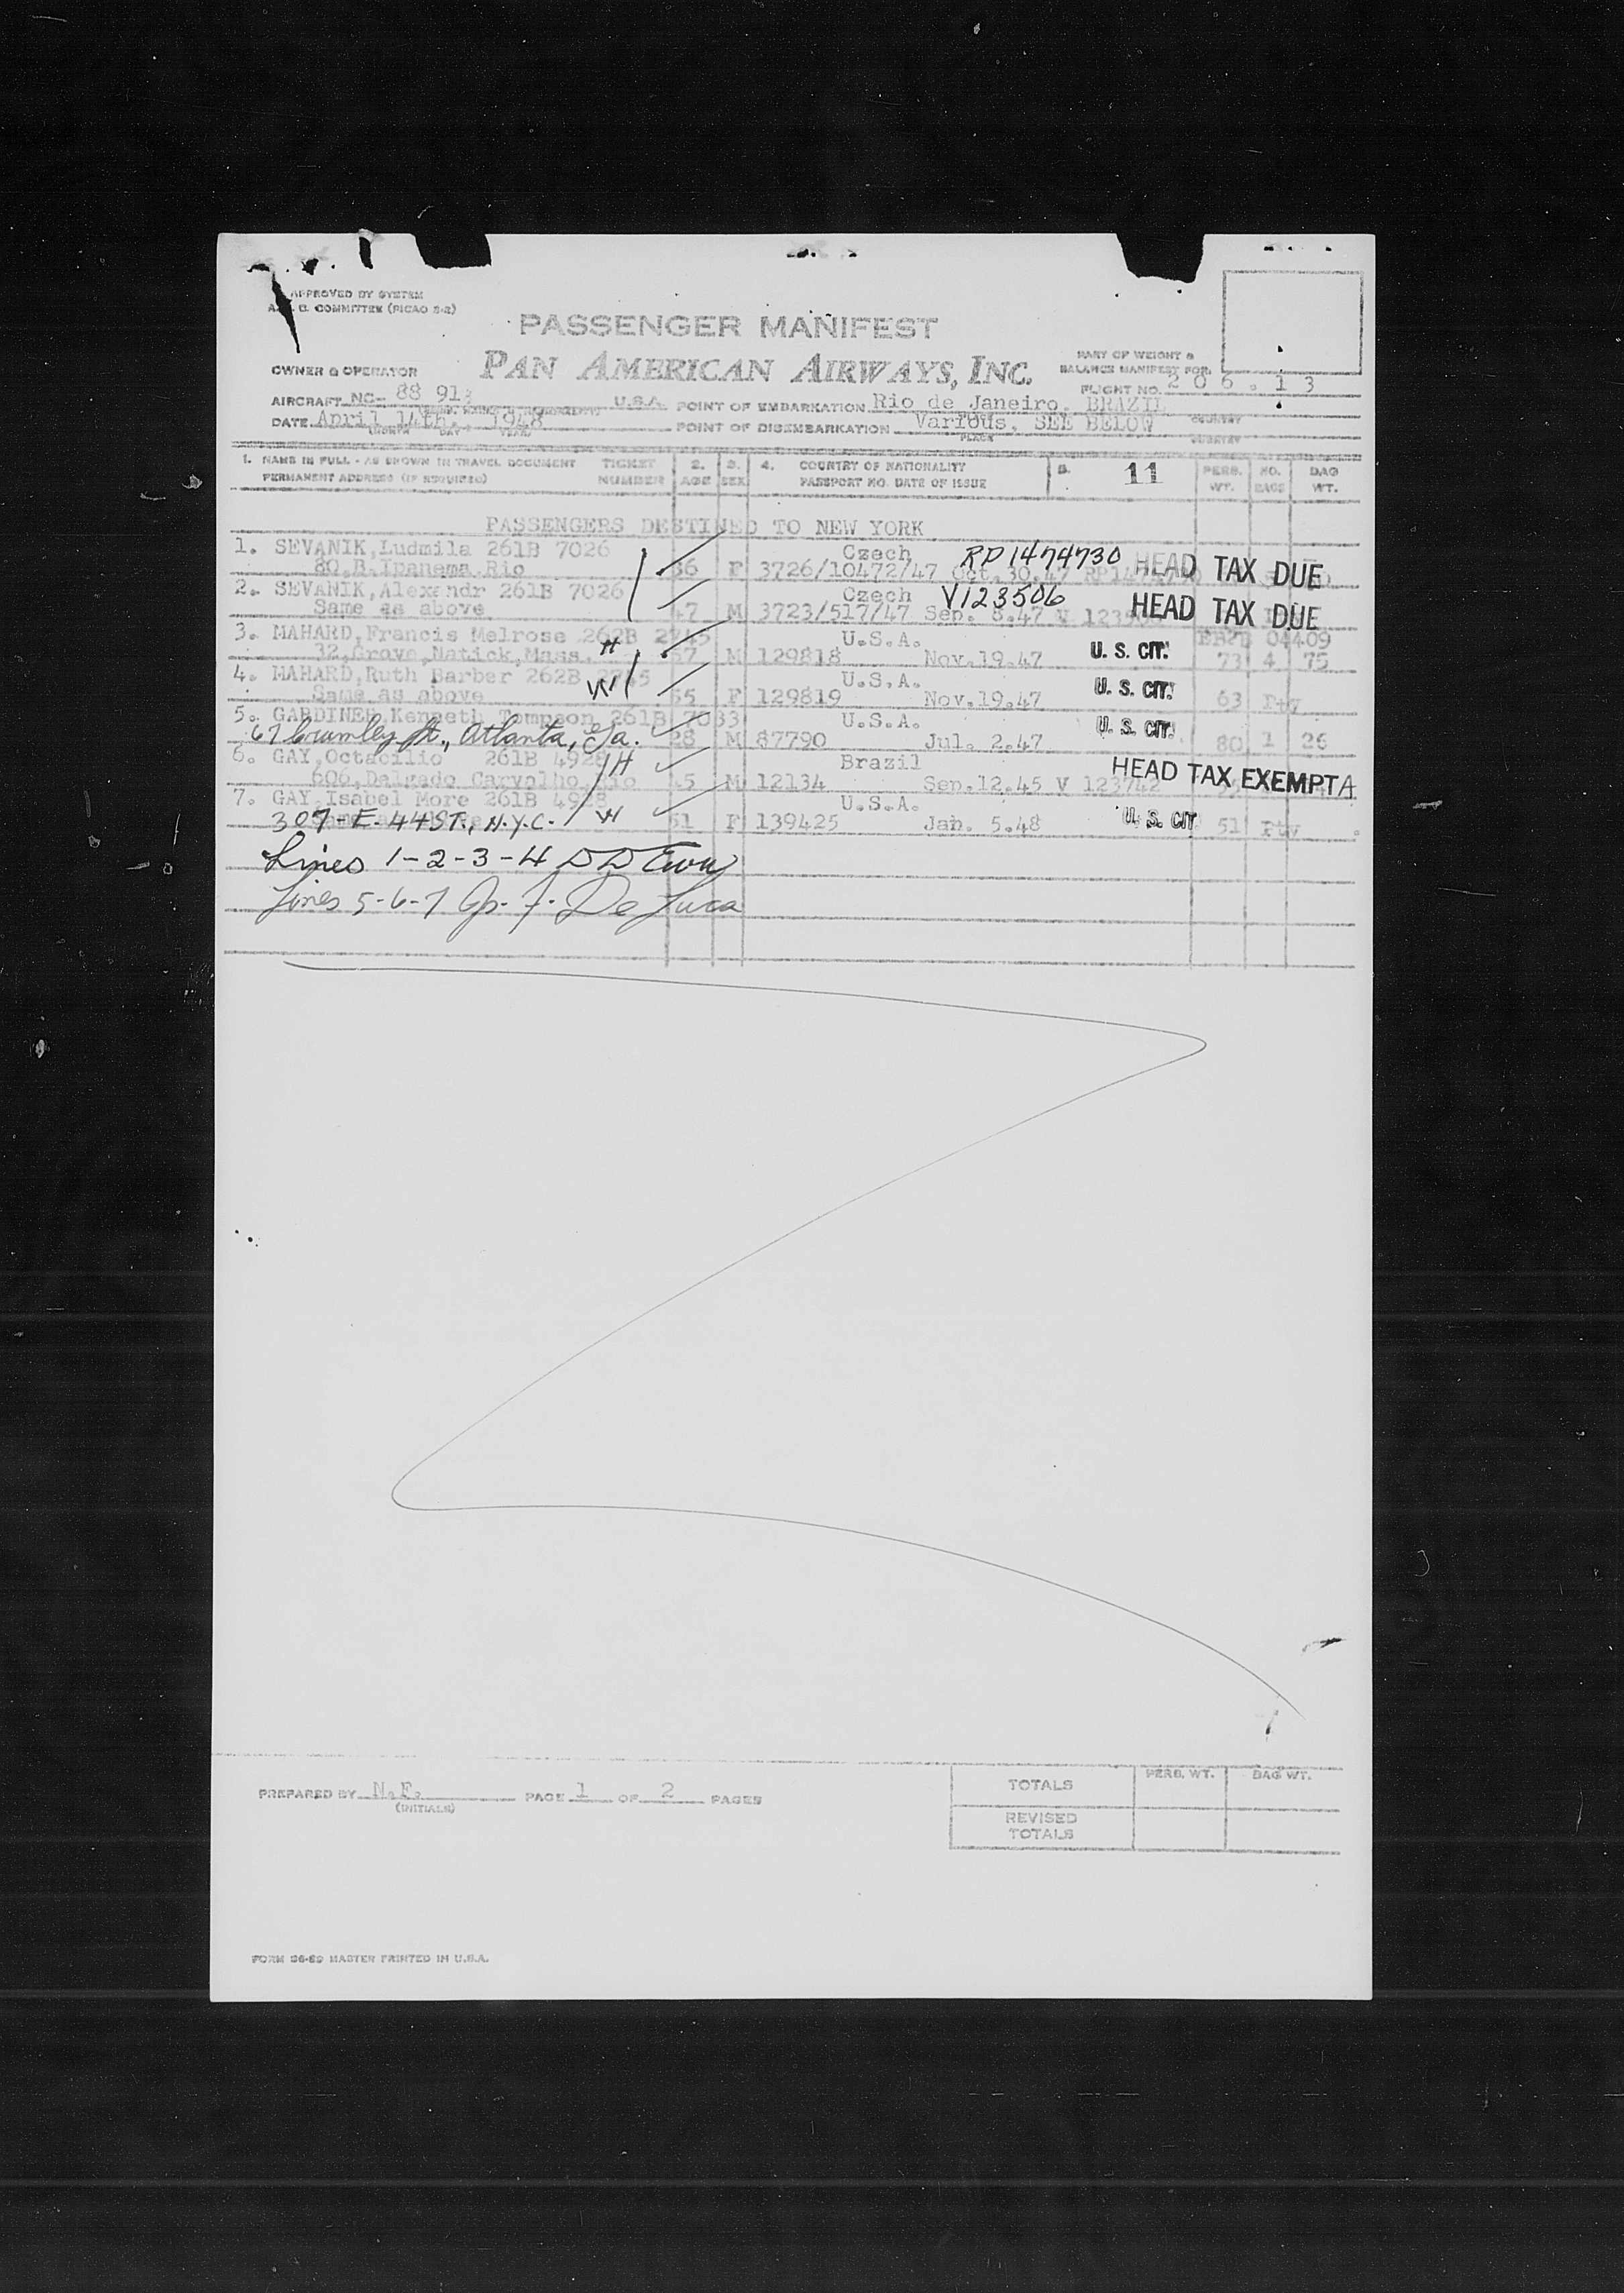 APPROVED BY SYSTEM
COMMITTEE (PICAO 2-2)
PASSENGER MANIFEST
PAN AMERICAN AIRWAYS, INC.
PART OF WEIGHT &
BALANCE MANIFEST FOR
OWNER & OPERATOR
FLIGHT NO. 206.13
AIRCRAFT NC- 88 91 U.S.A. POINT OF EMBARKATION Rio de Janeiro, BRAZIL
DATE April 14th. 1948 POINT OF DISEMBARKATION Various, SEE BELOW
(MONTH DAY YEAR) PLACE COUNTRY
1. NAME IN FULL - AS SHOWN IN TRAVEL DOCUMENT TICKET 2. 3. 4. COUNTRY OF NATIONALITY 5. 11 PERS. NO. BAG
PERMANENT ADDRESS (IF REQUIRED) NUMBER AGE SEX PASSPORT NO. DATE OF ISSUE WT. BAGS WT.
PASSENGERS DESTINED TO NEW YORK
1. SEVANIK, Ludmila 261B 7026 Czech RP1474730 HEAD TAX DUE
80, B. Ipanema, Rio 36 F 3726/10472/47 Oct.30.47
2. SEVANIK, Alexandr 261B 7026 Czech V123506 HEAD TAX DUE
Same as above 47 M 3723/517/47 Sep. 8.47 V
3. MAHARD, Francis Melrose 262B 2745 U.S.A. U. S. CIT. 04409
32, Grove, Natick, Mass. H 57 M 129818 Nov.19.47 73 4 75
4. MAHARD, Ruth Barber 262B 2745 U.S.A. U. S. CIT.
Same as above W 55 F 129819 Nov.19.47 63 Pty
5. GARDINER, Kenneth Tompson 261B 7033 U.S.A. U. S. CIT.
67 Crumley St., Atlanta, Ga. 28 M 87790 Jul. 2.47 80 1 26
6. GAY, Octacilio 261B 4928 H Brazil HEAD TAX EXEMPT A
606, Delgado Carvalho, Rio 45 M 12134 Sep.12.45 V 123742
7. GAY, Isabel More 261B 4928 U.S.A. U. S. CIT
307-E-44 ST., N.Y.C. W 51 F 139425 Jan. 5.48 51 Pty
Lines 1-2-3-4
Lines 5-6-7 De Luca
PREPARED BY N.F. PAGE 1 OF 2 PAGES
(INITIALS)
TOTALS PERS. WT. BAG WT.
REVISED
TOTALS
FORM 36-89 MASTER PRINTED IN U.S.A.